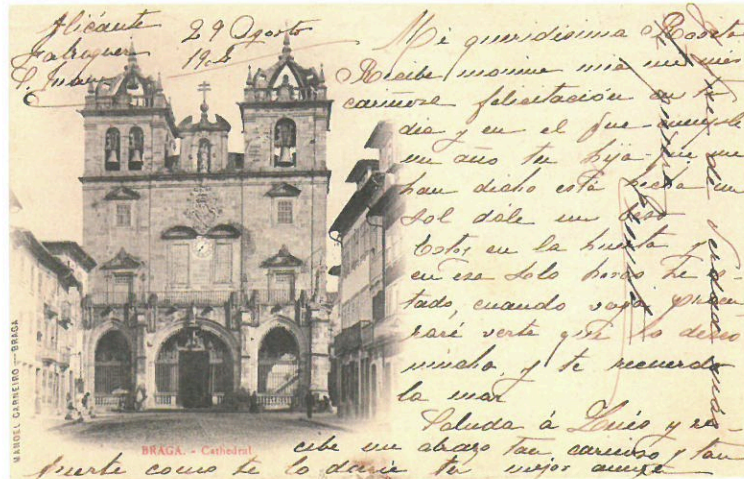 Alicante 29 Agosto
S. Juan 190
Mi queridisima Rosita
Recibe monina mia mi mas
cariñosa felicitación en tu
dia y en el que cumple
un año tu hija que me
han dicho está hecha un
sol dale un beso
Estoy en la huerta y
en esa solo horas he es-
tado, cuando vaya procu
raré verte que lo deseo
mucho, y te recuerdo
la mar
Saluda á Luis y re-
cibe un abrazo tan cariñoso y tan
fuerte como te lo daria tu mejor amiga
MANOEL CARNEIRO — BRAGA
BRAGA. - Cathedral